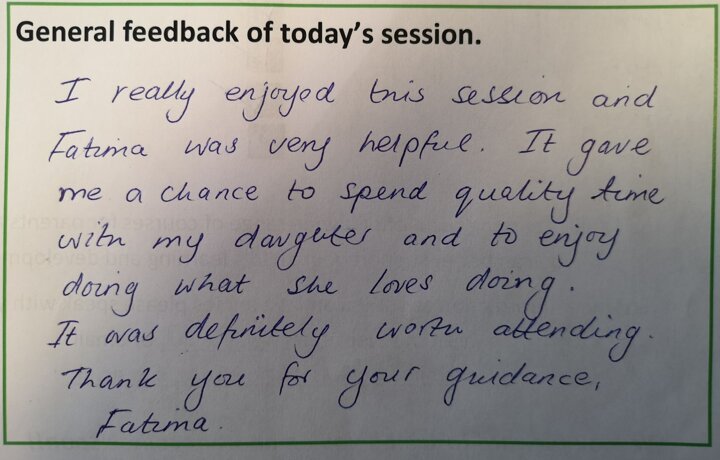 General feedback of today's session.
I really enjoyed this session and
Fatima was very helpful. It gave
me a chance to spend quality time
with my daughter and to enjoy
doing what she loves doing.
It was definitely worth attending.
Thank you for your guidance,
Fatima.